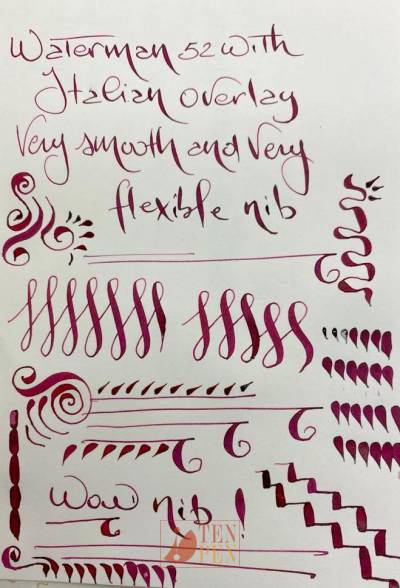 Waterman 52 with
Italian overlay
Very smooth and very
flexible nib
Wow nib!
TEN
PEN